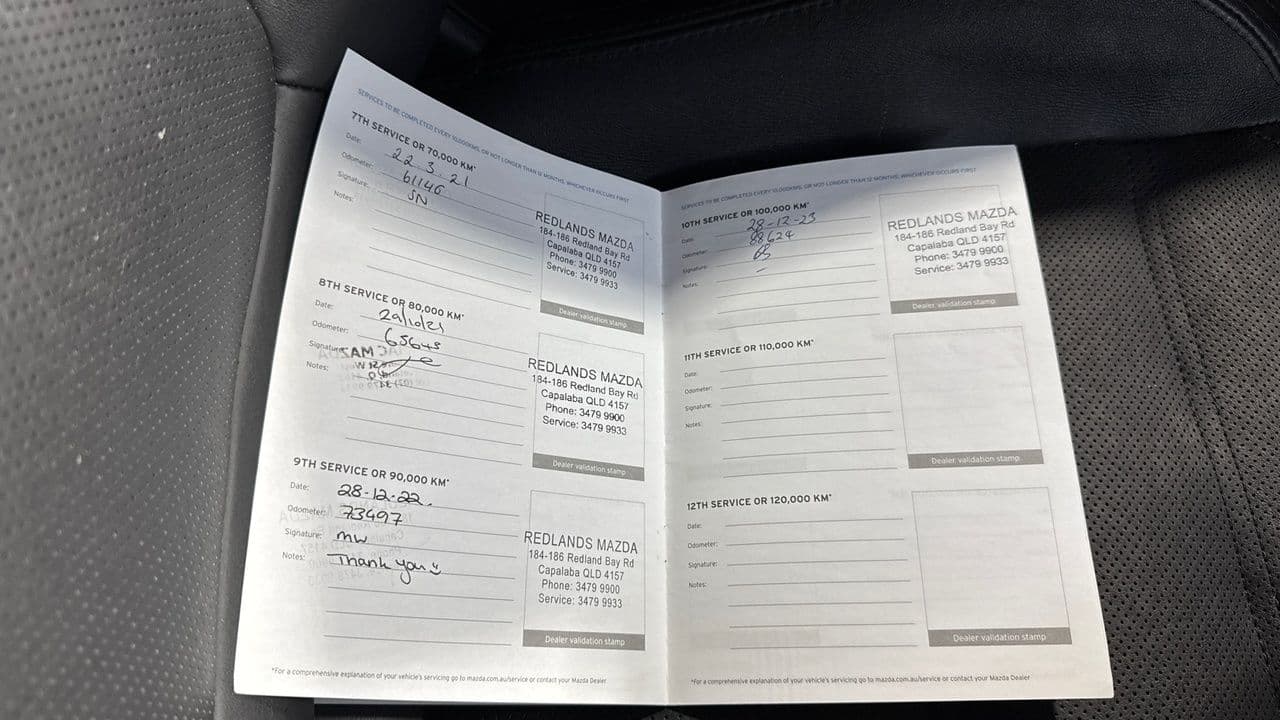 SERVICES TO BE COMPLETED EVERY 10,000KMS, OR NOT LONGER THAN 12 MONTHS, WHICHEVER OCCURS FIRST
7TH SERVICE OR 70,000 KM*
Date: 22.3.21
Odometer: 61146
Signature: SN
Notes:
REDLANDS MAZDA
184-186 Redland Bay Rd
Capalaba QLD 4157
Phone: 3479 9900
Service: 3479 9933
Dealer validation stamp
8TH SERVICE OR 80,000 KM*
Date: 29/10/21
Odometer: 65645
Signature:
Notes:
REDLANDS MAZDA
184-186 Redland Bay Rd
Capalaba QLD 4157
Phone: 3479 9900
Service: 3479 9933
Dealer validation stamp
9TH SERVICE OR 90,000 KM*
Date: 28-12-22.
Odometer: 73497
Signature: mw
Notes: Thank you
REDLANDS MAZDA
184-186 Redland Bay Rd
Capalaba QLD 4157
Phone: 3479 9900
Service: 3479 9933
Dealer validation stamp
*For a comprehensive explanation of your vehicle's servicing go to mazda.com.au/service or contact your Mazda Dealer
SERVICES TO BE COMPLETED EVERY 10,000KMS, OR NOT LONGER THAN 12 MONTHS, WHICHEVER OCCURS FIRST
10TH SERVICE OR 100,000 KM*
Date: 28-12-23
Odometer: 88624
Signature:
Notes: -
REDLANDS MAZDA
184-186 Redland Bay Rd
Capalaba QLD 4157
Phone: 3479 9900
Service: 3479 9933
Dealer validation stamp
11TH SERVICE OR 110,000 KM*
Date:
Odometer:
Signature:
Notes:
Dealer validation stamp
12TH SERVICE OR 120,000 KM*
Date:
Odometer:
Signature:
Notes:
Dealer validation stamp
*For a comprehensive explanation of your vehicle's servicing go to mazda.com.au/service or contact your Mazda Dealer